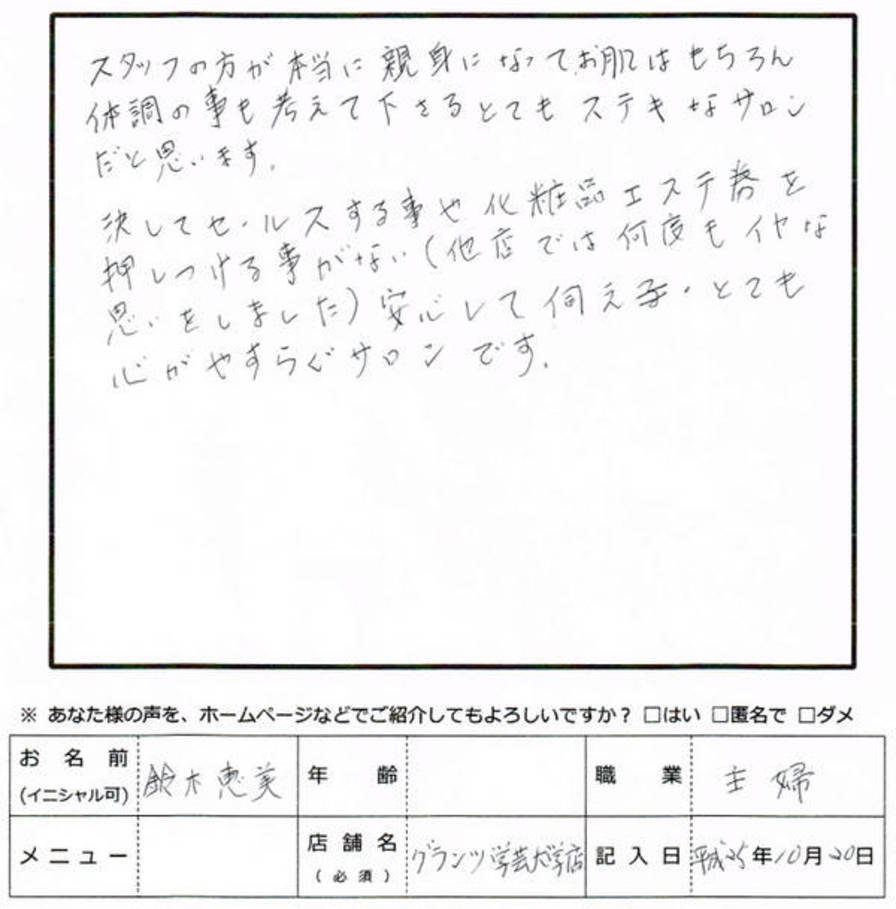 スタッフの方が本当に親身になってお肌はもちろん
体調の事も考えて下さるとてもステキなサロン
だと思います。
決してセールスする事や化粧品エステ券を
押しつける事がない(他店では何度もイヤな
思いをしました)安心して伺える・とても
心がやすらぐサロンです。
※ あなた様の声を、ホームページなどでご紹介してもよろしいですか? □はい □匿名で □ダメ
お名前 鈴木恵美 年齢 職業 主婦
(イニシャル可)
メニュー 店舗名 グランツ学芸大学店 記入日 平成25年10月20日
(必須)